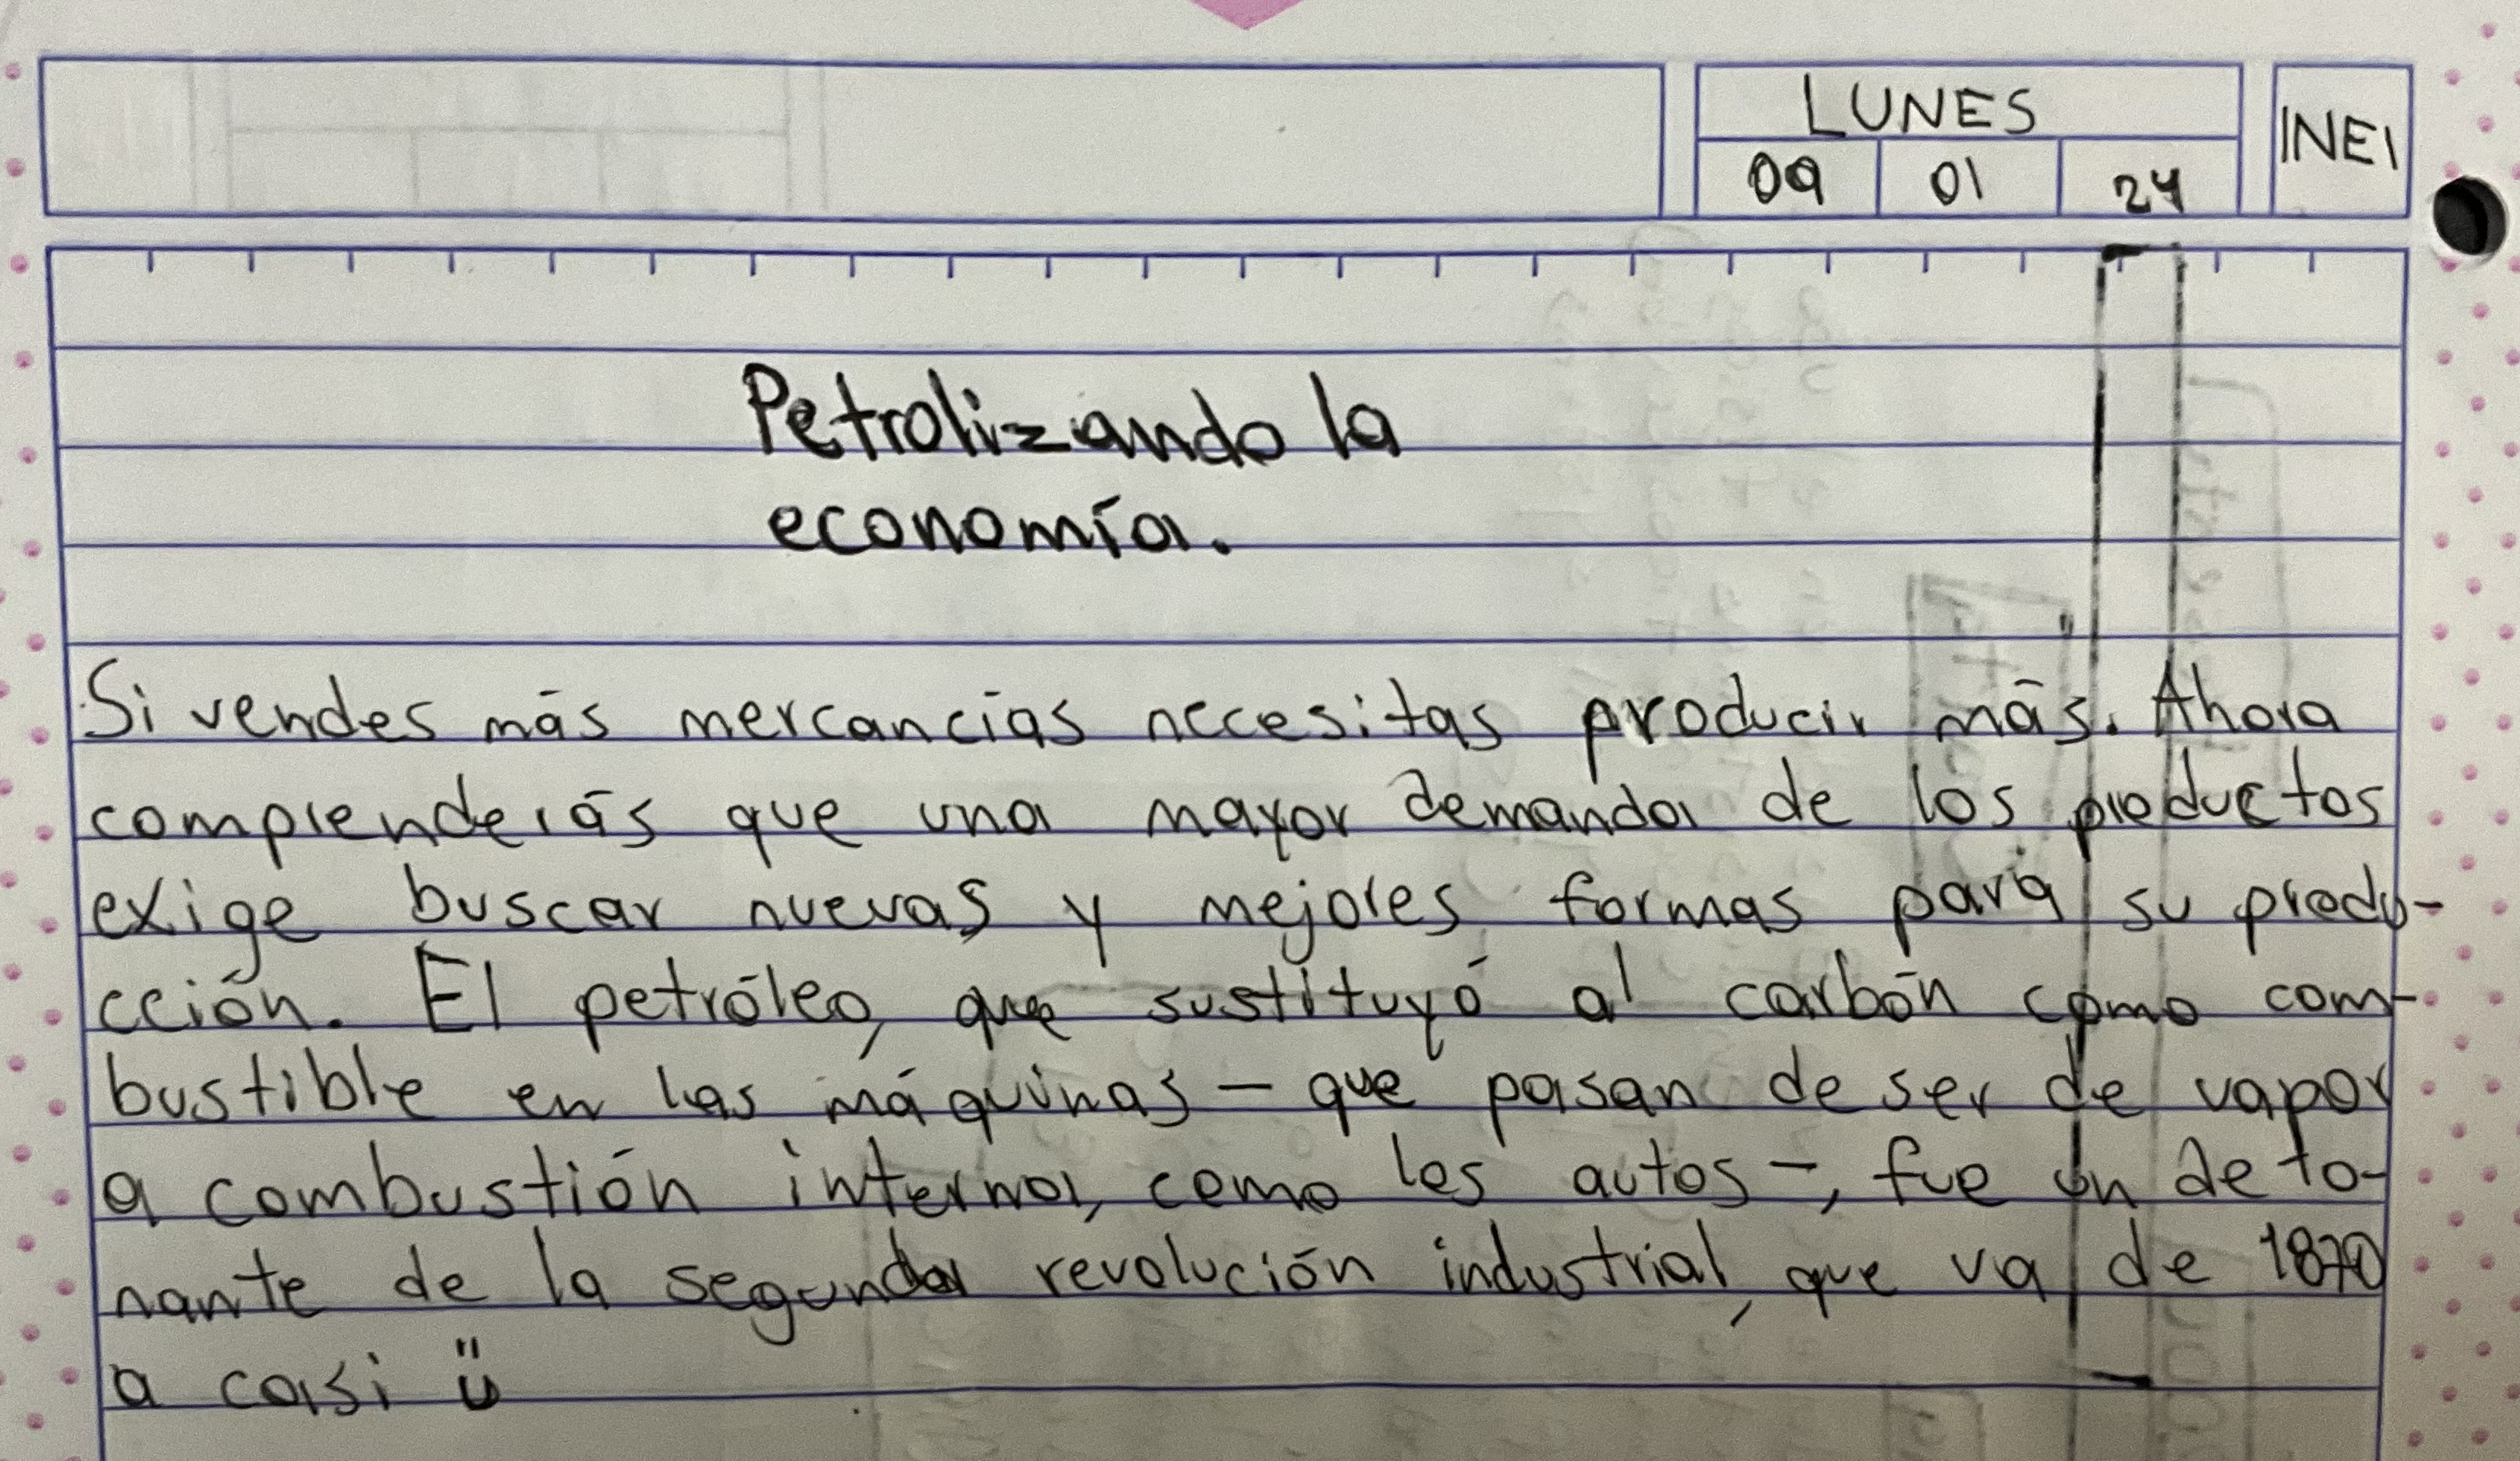 LUNES
09 01 24
INEI
Petrolizando la
economía.
Si vendes más mercancias necesitas producir más. Ahora
comprenderás que una mayor demanda de los productos
exige buscar nuevas y mejores formas para su produ-
cción. El petróleo, que sustituyó al carbón como com-
bustible en las máquinas - que pasan de ser de vapor
a combustión interna, como los autos -, fue un deto-
nante de la segunda revolución industrial, que va de 1870
a casi